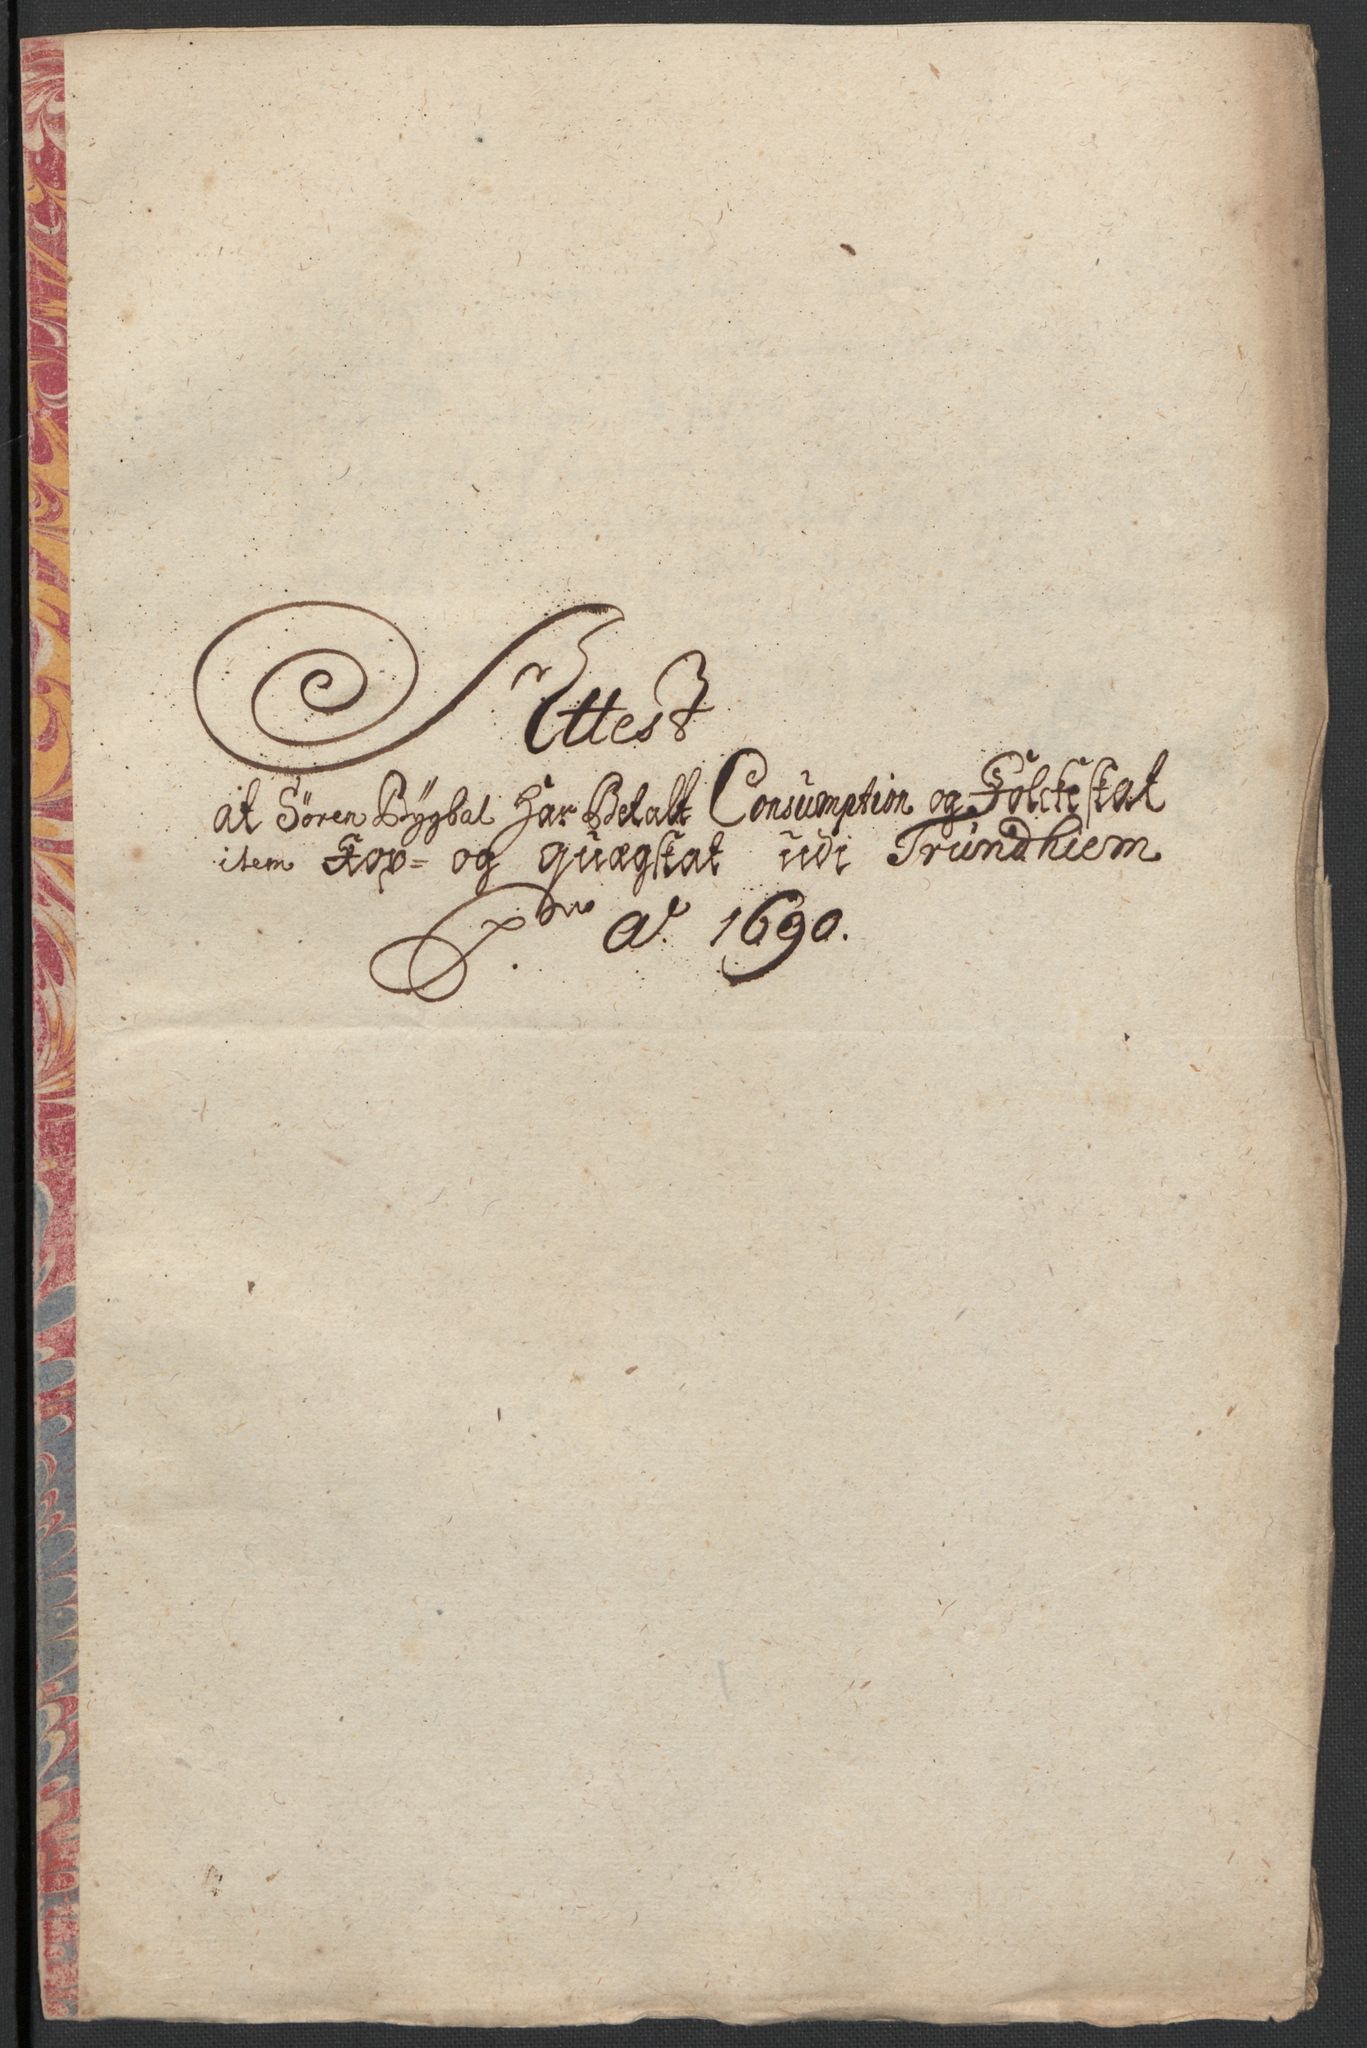 Attest
at Sören Bÿgbal har Betalt Consumption og Folckeskat
item Kop= og quægskat udi Trundhiem
Pro Ao. 1690.